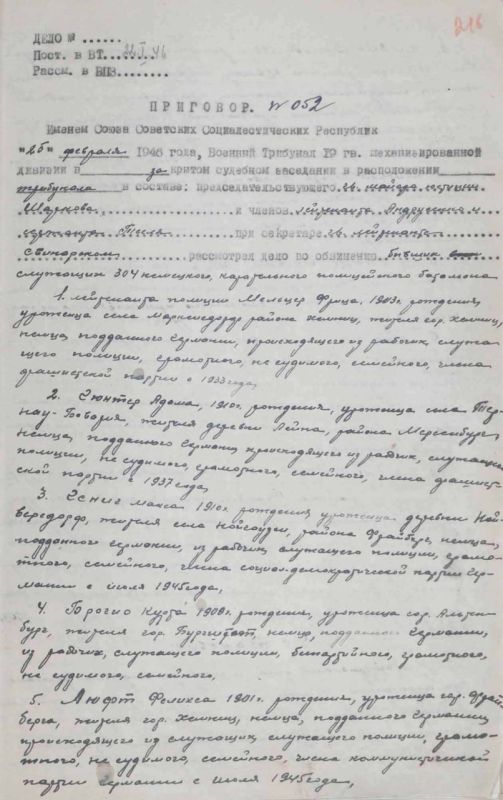 216
ДЕЛО № ......
Пост. в ВТ. 22.I.46
Рассм. в ВПЗ........
ПРИГОВОР. № 052
Именем Союза Советских Социалестических Республик
"26" февраля 1946 года, Военный Трибунал 19 гв. механизированной
дивизии в за критом судебном заседании в расположении
трибунала в составе: председательствующего юстиции
Шаркова, и членов лейтенанта и
сержанта при секретаре лейтенанте
рассмотрел дело по обвинению: бывших
служащих 304 немецкого, карательного полицейского батальона
1. лейтенанта полиции Мельцер Фрица, 1903г. рождения,
уроженца села Маркерсдорф района Хемниц, жителя гор. Хемниц,
немца, подданного Германии, происходящего из рабочих, служа-
щего полиции, грамотного, не судимого, семейного, члена
фашистской партии с 1933 года,
2. Гюнтер Адама, 1910г. рождения, уроженца села
Бавария, жителя деревни Лейна, района Мерсебург,
немца, подданного Германии, происходящего из рабочих, служащего
полиции, не судимого, грамотного, семейного, члена фашист-
ской партии с 1937 года,
3. Макса 1910г. рождения уроженца деревни
жителя села района Фрайберг, немца,
подданного Германии, из рабочих, служащего полиции, грамо-
тного, семейного, члена социал-демократической партии Гер-
мании с июля 1945 года,
4. Курта 1909г. рождения, уроженца гор. Альтен-
бург, жителя гор. немца, подданного Германии,
из рабочих, служащего полиции, беспартийного, грамотного,
не судимого, семейного.
5. Люфт Феликса 1901г. рождения, уроженца гор. Фрай-
берга, жителя гор. Хемниц, немца, подданного Германии,
происходящего из служащих, служащего полиции, грамо-
тного, не судимого, семейного, члена коммунистической
партии Германии с июля 1945 года,